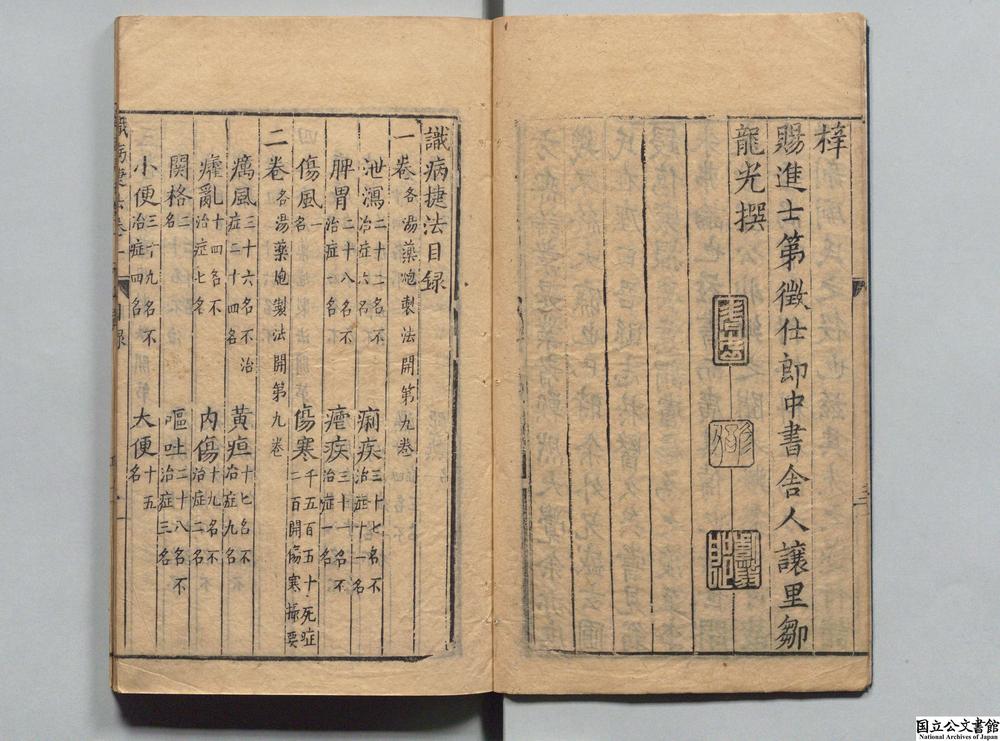 梓
賜進士第徵仕郎中書舍人讓里鄒
龍光撰
識病捷法目録
一卷 各湯藥炮製法開第九卷
泄瀉 二十二名不治症六名 痢疾 三十七名不治症十一名
脾胃 二十八名不治症一名 瘧疾 三十一名不治症一名
傷風 一名 傷寒 千五百五十死症二百開傷寒撮要
二卷 各湯藥炮製法開第九卷
癘風 三十六名不治症二十四名 黄疸 十七名不治症九名
霍亂 十四名不治症七名 内傷 十九名不治症二名
關格 二名 嘔吐 二十八名不治症三名
小便 三十九名不治症四名 大便 十五名
識病捷法卷 目録
国立公文書館
National Archives of Japan